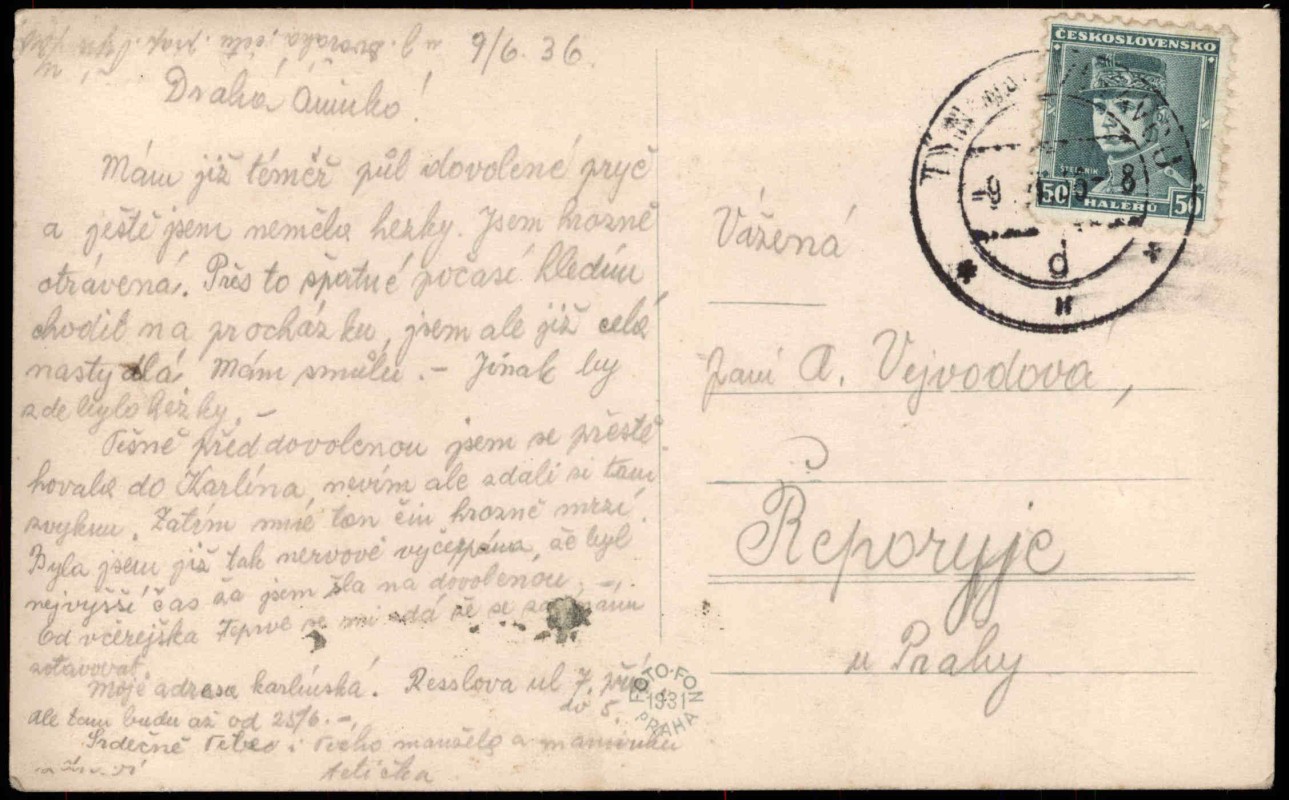 9/6. 36.
Drahá Aninko!
Mám již téměř půl dovolené pryč
a ještě jsem neměla hezky. Jsem hrozně
otrávená. Přes to špatné počasí hledím
chodit na procházku, jsem ale již celá
nastydlá. Mám smůlu. – Jinak by
zde bylo hezky. –
Těšně před dovolenou jsem se přestě-
hovala do Karlína, nevím ale zdali si tam
zvyknu. Zatím mně ten čin hrozně mrzí.
Byla jsem již tak nervově vyčerpána, že byl
nejvyšší čas že jsem šla na dovolenou. –
Od včerejška teprve se mi zdá že se
zotavovat.
Moje adresa karlínská. Resslova ul 7.
ale tam budu až od 25/6. –
Srdečně Tebe i Tvého manžela a maminku
tetička
Vážená
paní A. Vejvodova,
Řeporyje
u Prahy
ČESKOSLOVENSKO
ŠTEFÁNIK
50 HALÉŘŮ 50
TÝN
8
d
FOTO-FON
1931
PRAHA